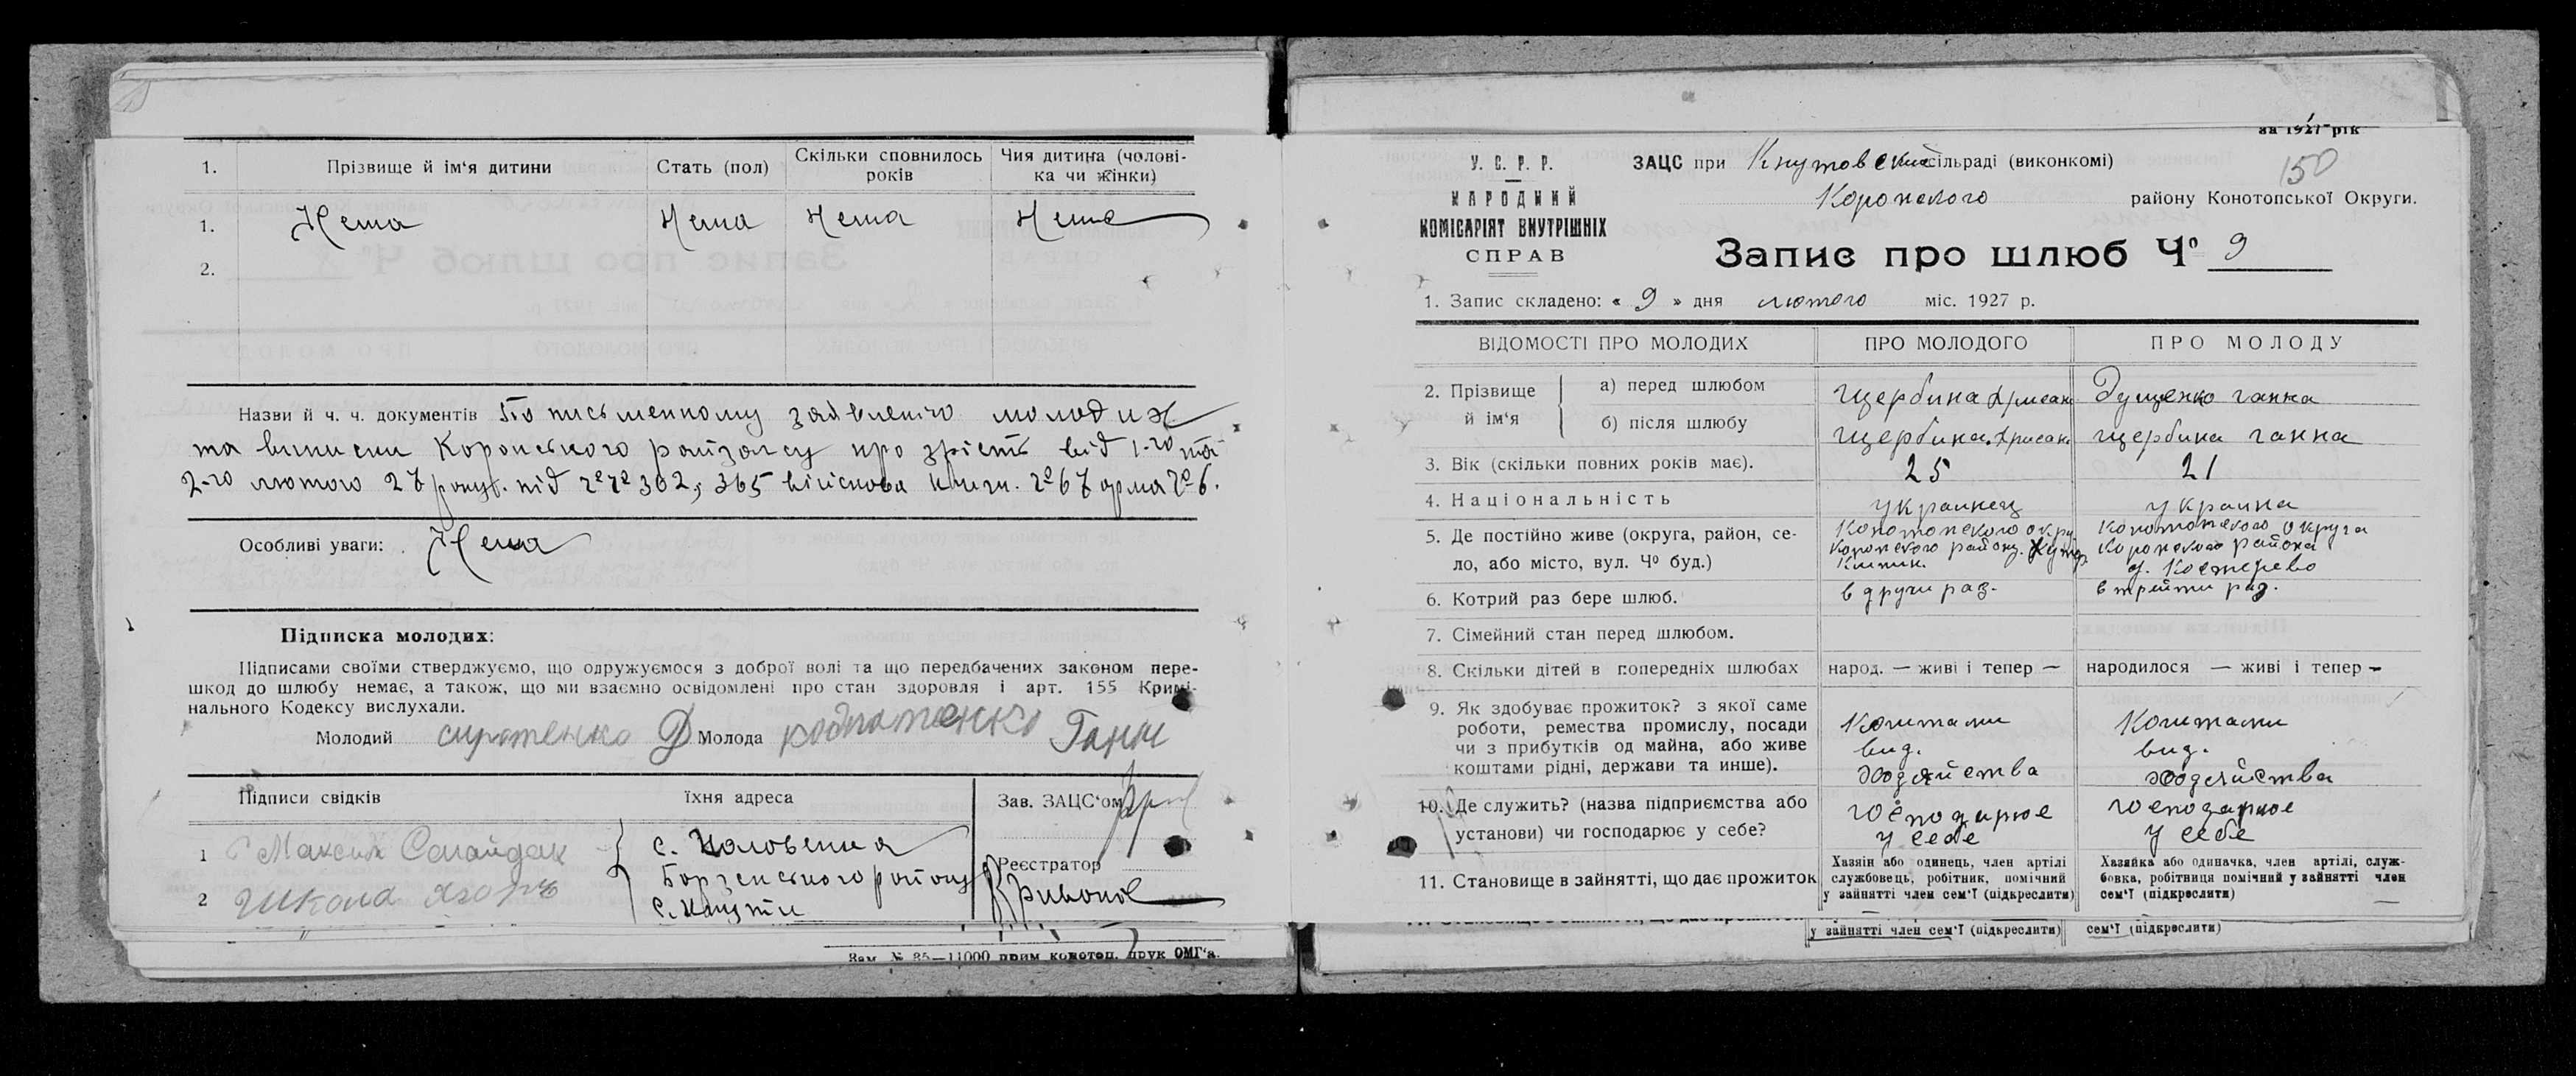 1. Прізвище й ім‘я дитини Стать (пол) Скільки сповнилось років Чия дитина (чолові-ка чи жінки)
1. Нема Нема Нема Нема
2.
Назви й ч. ч. документів По письменному заявленію молодих
та виписки Коропського райзагсу про зрість від 1-го та
2-го лютого 27 року. під 302, 365 війскова книги. 67 6.
Особливі уваги: Нема
Підписка молодих:
Підписами своїми стверджуємо, що одружуємося з доброї волі та що передбачених законом пере-
шкод до шлюбу немає, а також, що ми взаємно освідомлені про стан здоровля і арт. 155 Кримі-
нального Кодексу вислухали.
Молодий сиротенко Д Молода Ганни
Підписи свідків їхня адреса Зав. ЗАЦС‘ом
1 Максим Сагайдак с.
Борзенського району
Реєстратор
2 Школа с.
Зам. № 85—11000 прим конотоп. друк ОМГ‘а.
за 1927 рік
150
У. С. Р. Р.
НАРОДНИЙ
КОМІСАРІЯТ ВНУТРІШНІХ
СПРАВ
ЗАЦС при сільраді (виконкомі)
Коропского району Конотопської Округи.
Запис про шлюб Ч⁰ 9
1. Запис складено: « 9 » дня лютого міс. 1927 р.
ВІДОМОСТІ ПРО МОЛОДИХ ПРО МОЛОДОГО ПРО МОЛОДУ
2. Прізвище й ім‘я
а) перед шлюбом Щербина Хрисан Дущенко ганна
б) після шлюбу Щербина Хрисан щербина ганна
3. Вік (скільки повних років має). 25 21
4. Національність украинец украинка
5. Де постійно живе (округа, район, се-
ло, або місто, вул. Ч⁰ буд.)
Конотопского окру.
Коропского району.
Конотопского округа
Коропского района
6. Котрий раз бере шлюб. в други раз. в трейти раз.
7. Сімейний стан перед шлюбом.
8. Скільки дітей в попередніх шлюбах народ. — живі і тепер — народилося — живі і тепер —
9. Як здобуває прожиток? з якої саме
роботи, ремества промислу, посади
чи з прибутків од майна, або живе
коштами рідні, держави та инше).
Коштами
вид.
ходзяйства
Коштами
вид.
ходзяйства
10. Де служить? (назва підприємства або
установи) чи господарює у себе?
господарюе
у себе
господарюе
у себе
11. Становище в зайнятті, що дає прожиток
Хазяїн або одинець, член артілі
службовець, робітник, помічний
у зайнятті член сем‘ї (підкреслити)
Хазяйка або одиначка, член артілі, служ-
бовка, робітниця помічний у зайнятті член
сем‘ї (підкреслити)
у зайнятті член сем‘ї (підкреслити) сем‘ї (підкреслити)